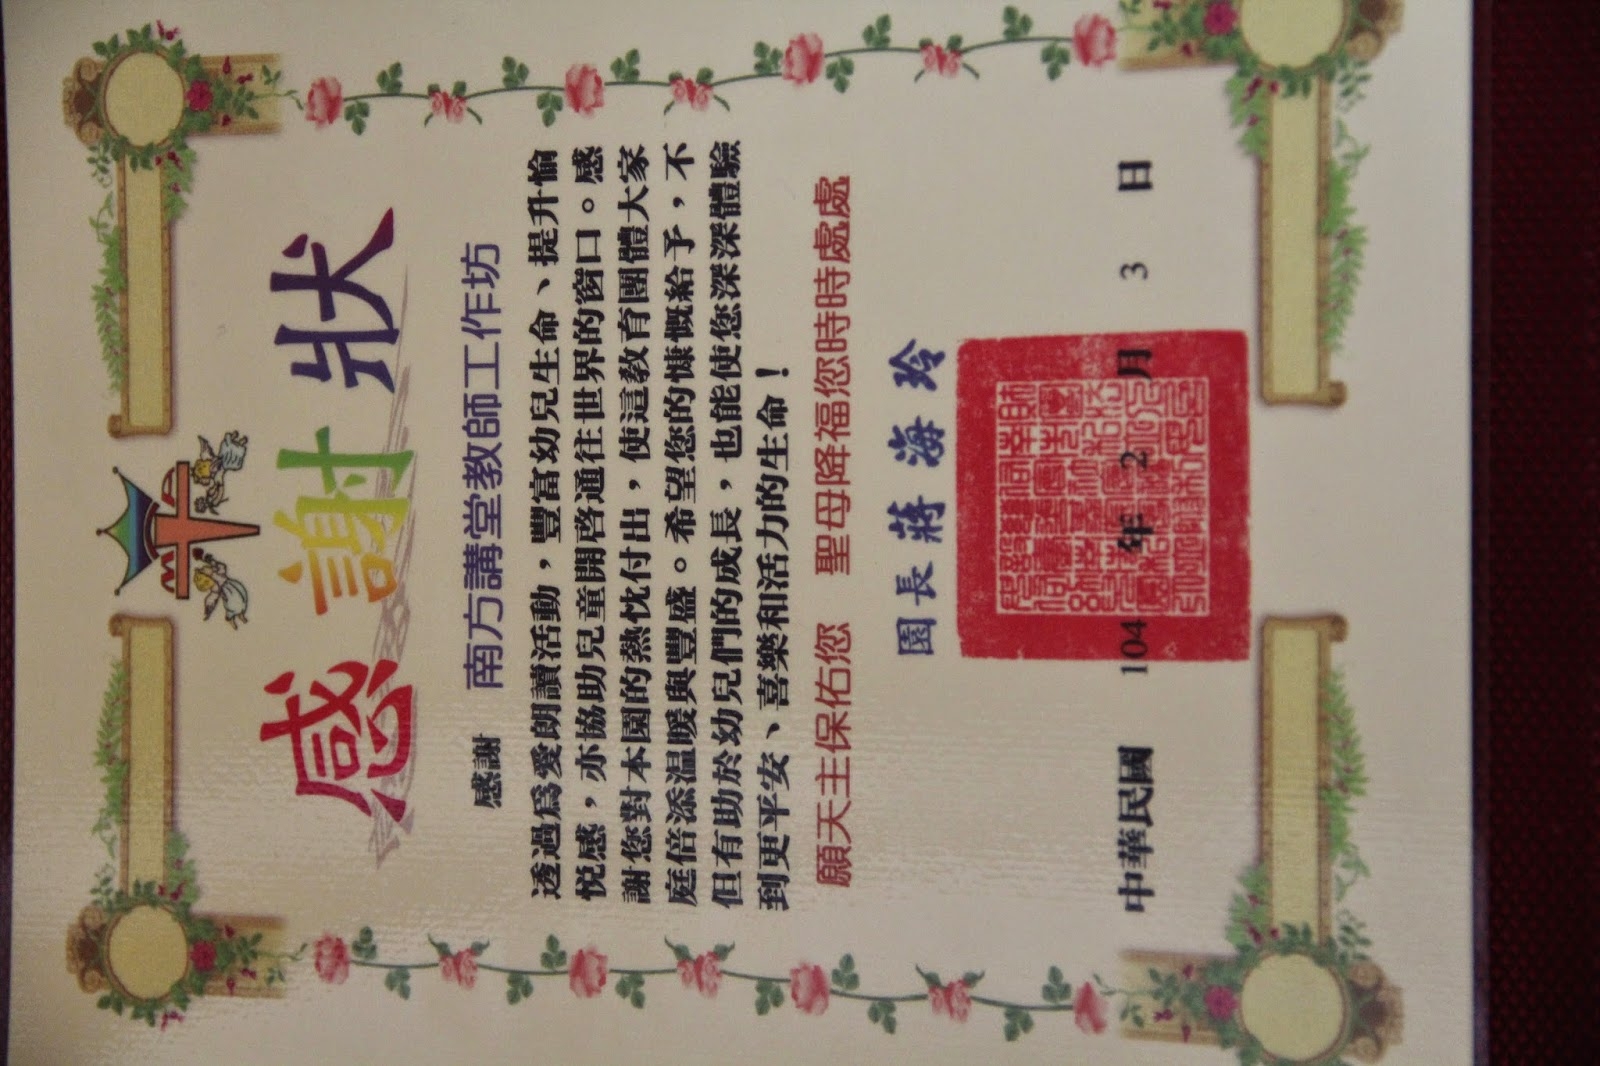 感謝狀
感謝 南方講堂教師工作坊
透過為愛朗讀活動，豐富幼兒生命、提升愉
悅感，亦協助兒童開啓通往世界的窗口。感
謝您對本園的熱忱付出，使這教育團體大家
庭倍添溫暖與豐盛。希望您的慷慨給予，不
但有助於幼兒們的成長，也能使您深深體驗
到更平安、喜樂和活力的生命！
願天主保佑您 聖母降福您時時處處
園長 蔣海玲
中華民國 104 年 2 月 3 日